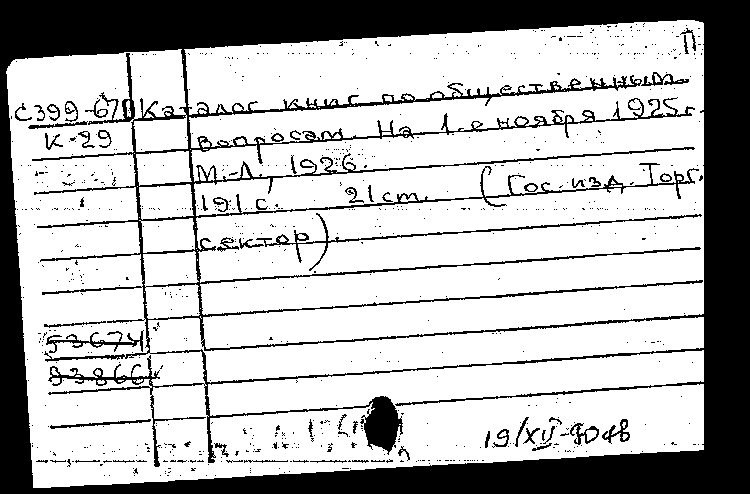 П
С399-670 Каталог книг по общественным
К-29 вопросам. На 1-е ноября 1925г.
М.-Л., 1926.
191 с. 21 cm. (Гос. изд. Торг.
сектор).
53674
93866